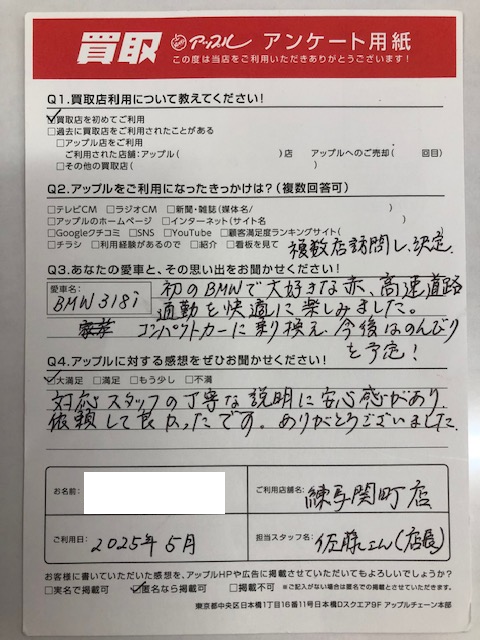 買取 アップル アンケート用紙
この度は当店をご利用いただきありがとうございます!
Q1.買取店利用について教えてください!
☑買取店を初めてご利用
□過去に買取店をご利用されたことがある
□アップル店をご利用
ご利用された店舗:アップル( )店 アップルへのご売却( 回目)
□その他の買取店( )
Q2.アップルをご利用になったきっかけは?(複数回答可)
□テレビCM □ラジオCM □新聞・雑誌(媒体名/ )
□アップルのホームページ □インターネット(サイト名 )
□Googleクチコミ □SNS □YouTube □顧客満足度ランキングサイト(
□チラシ □利用経験があるので □紹介 □看板を見て 複数店訪問し、決定.
Q3.あなたの愛車と、その思い出をお聞かせください!
愛車名: BMW318i
初のBMWで大好きな赤、高速道路
通勤を快適に楽しみました。
コンパクトカーに乗り換え、今後はのんびり
を予定!
Q4.アップルに対する感想をぜひお聞かせください!
☑大満足 □満足 □もう少し □不満
対応スタッフの丁寧な説明に安心感があり
依頼して良かったです。ありがとうございました.
お名前:
ご利用店舗名: 練馬関町店
ご利用日: 2025年5月
担当スタッフ名: 佐藤さん(店長)
お客様に書いていただいた感想を、アップルHPや広告に掲載させていただいてもよろしいでしょうか?
□実名で掲載可 ☑匿名なら掲載可 □掲載不可 ※ご記入がない場合は匿名での掲載とさせていただきます。
東京都中央区日本橋1丁目16番11号日本橋Dスクエア9F アップルチェーン本部